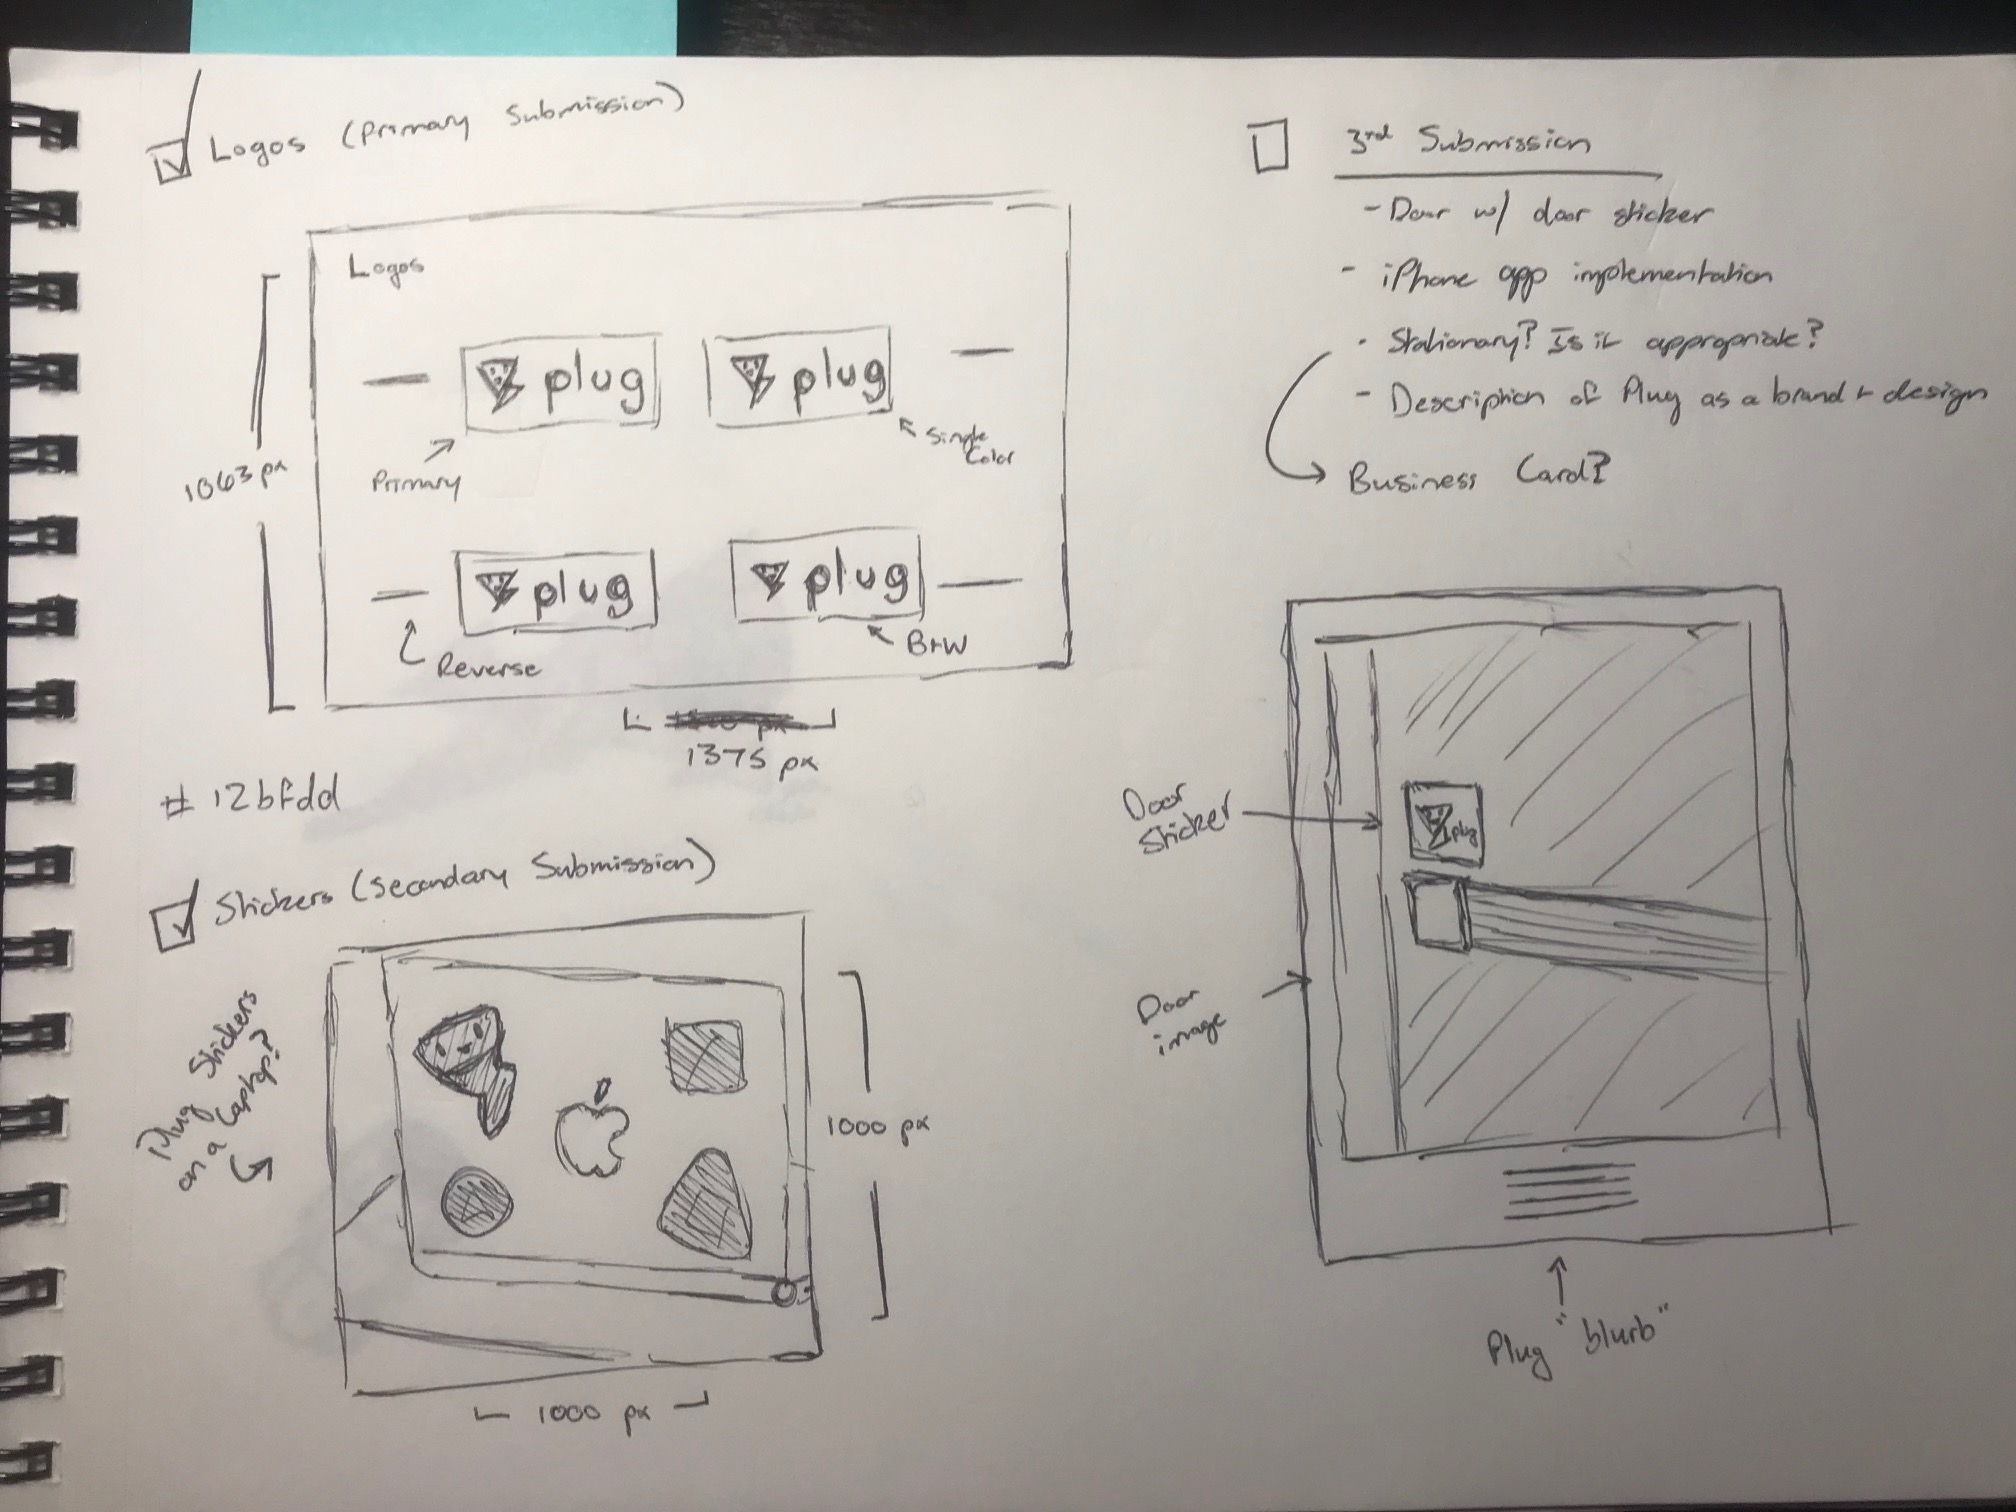 Logos (Primary Submission)
Logos
plug
plug
Primary
Single
Color
plug
plug
Reverse
B+W
1063 px
1375 px
#12bfdd
Stickers (Secondary Submission)
Plug Stickers
on a Laptop?
1000 px
1000 px
3rd Submission
- Door w/ door sticker
- iPhone app implementation
- Stationary? Is it appropriate?
- Description of Plug as a brand + design
Business Card?
Door
Sticker
plug
Door
image
Plug "blurb"